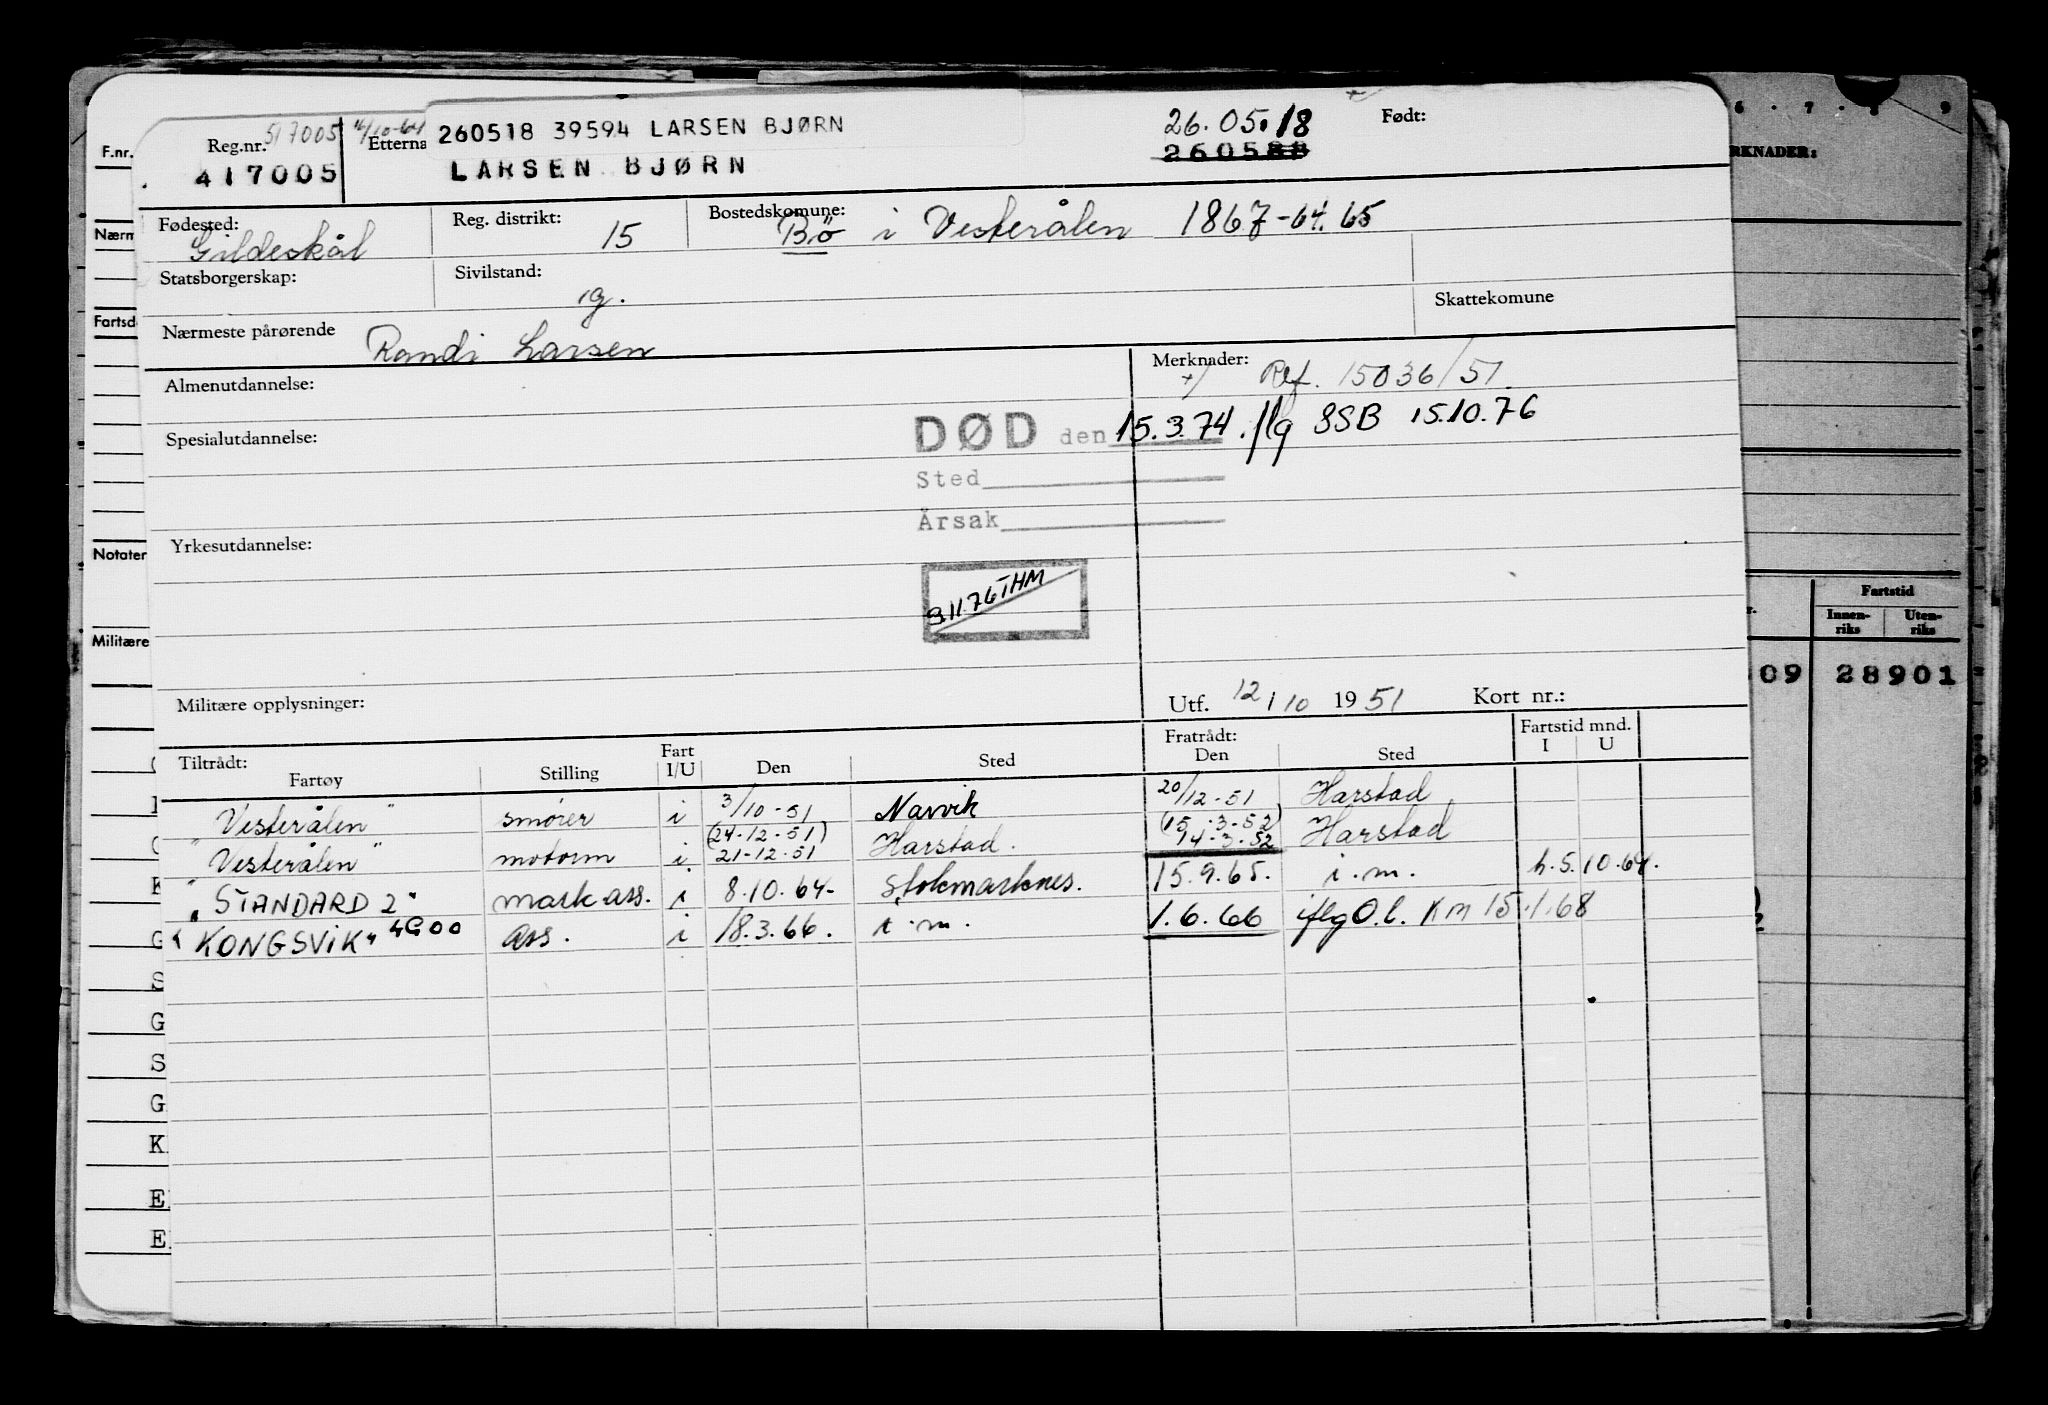 Reg.nr. 517005 Etterna 260518 39594 LARSEN BJØRN 26.05.18 Født:
417005 LARSEN BJØRN 260588
Fødested: Gildeskål Reg. distrikt: 15 Bostedskomune: Bö i Vesterålen 1867-64.65
Statsborgerskap: Sivilstand: ig. Skattekomune
Nærmeste pårørende Randi Larsen
Almenutdannelse: Merknader: Ref. 15036/51.
DØD den 15.3.74. flg SSB 15.10.76
Spesialutdannelse:
Sted
Årsak
Yrkesutdannelse:
9.11.76 THM
Militære opplysninger: Utf. 12/10 1951 Kort nr.:
Tiltrådt: Fratrådt: Fartstid mnd.
Fartøy Stilling Fart I/U Den Sted Den Sted I U
"Vesterålen" smører i 3/10-51 Narvik 20/12-51 Harstad
(24-12-51) (15-3-52)
"Vesterålen" motorm i 21-12-51 Harstad. 14-3-52 Harstad
"STANDARD 2" mask-ass. i 8.10.64- Stokmarknes. 15.9.65. i.m. h.5.10.64.
"KONGSVIK" 4G00 ass. i 18.3.66. i.m. 1.6.66 iflg O.l. KM 15.1.68
F.nr.
Nærm
Fartsd
Notater
Militære
K
G
S
G
S
G
K
E
E
6 · 7 · 8 · 9
RKNADER:
Fartstid
Innen-riks Uten-riks
09 28901